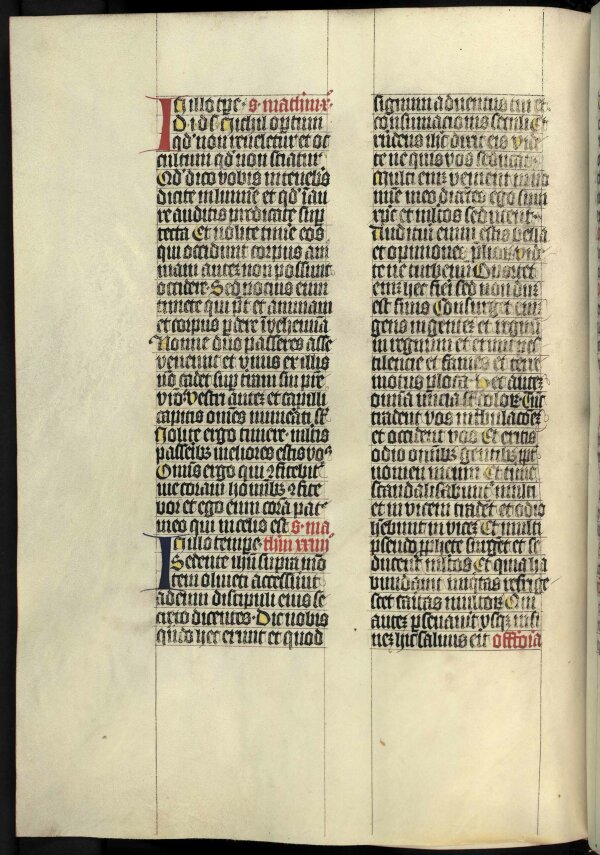 In illo tp̄e · s · matheum · x ·
D · i · d · s · Nichil optum
qd̓ non reueletur et oc
cultum qd̓ non sciatur
Qd̓ dico vobis in tenebris
dicite in lumine et qd̓ ī au
re auditis predicate sup̄
tecta Et nolite time̅ eos
qui occidunt corpus ani
mam autez non possunt
occidere · Sed pocius eum
timete qui pt̄ et animam
et corpus p̄dere ī gehenna
Nonne duo passeres asse
veneunt et vnus ex illis
nō cadet sup̄ tram̄ sin̄ pr̄e
vr̄o Vestri autez et capilli
capitis omēs numeati st̄
Nolite ergo timere · multis
passeribꝫ meliores estis vos
Omnis ergo qui ꝯfitebit̄
me coram hominibꝫ ꝯfite
bor et ego eum corā patre
meo qui in celis est s · ma
In illo tempe · thm xxiiij
Sedente ihū supra mō
tem oliueti accesserunt
ad eum discipuli eius se
creto dicentes · Dic nobis
qn̄do hec erunt et quod
signum aduentus tui et
consumacionis seculi Et
rn̄dens ihc̄ dixit eis vide
te ne quis vos seducat
Multi eniꝫ venient in no
mine meo dicētes ego sum
xpc̄ et multos seducent
Audituri enim estis bella
et opiniones plioꝝ vide
te ne turbemini Oportet
eniꝫ hec fieri sed nondum
est finis Consurget eniꝫ
gens in gentez et regnū
in regnum et erunt pes
tilencie et fames et terre
motus p̄ loca Hec autez
omnia inicia st̄ doloꝝ Tūc
tradent vos in t̄bulacōez
et occident vos Et eritis
odio omnibꝫ gentibꝫ ppt̄
nomen meum Et tunc
scandalisabunt̄ multi
et in vicem tradēt et odio
hēbunt in vicez Et multi
pseudo pp̄hete surgēt et se
ducent multos Et quia ha
bundauit iniq̄tas refrige
scet caritas multoꝝ Qui
autez p̄seuauit vsqꝫ in fi
nez hic saluus erit offt̄oia